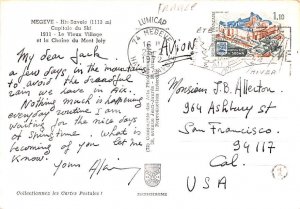 FRANCE
MEGEVE - Hte-Savoie (1113 m)
Capitale du Ski
1931 - Le Vieux Village
et la Chaîne du Mont Joly
LUMICAP
74 MEGEVE
16
1972
1,10
ETE
HIVER
AVION
My dear Jack
a few days, in the mountains
to avoid the dreadful
rain we have in Aix.
Nothing much is happening
everyday routine I am
waiting for the nice days
of springtime. What is
becoming of you let me
know.
Yours Alain
Monsieur J.B. Allerton
964 Ashbury St
San Francisco
94117
Cal.
USA
Collectionnez les Cartes Postales !